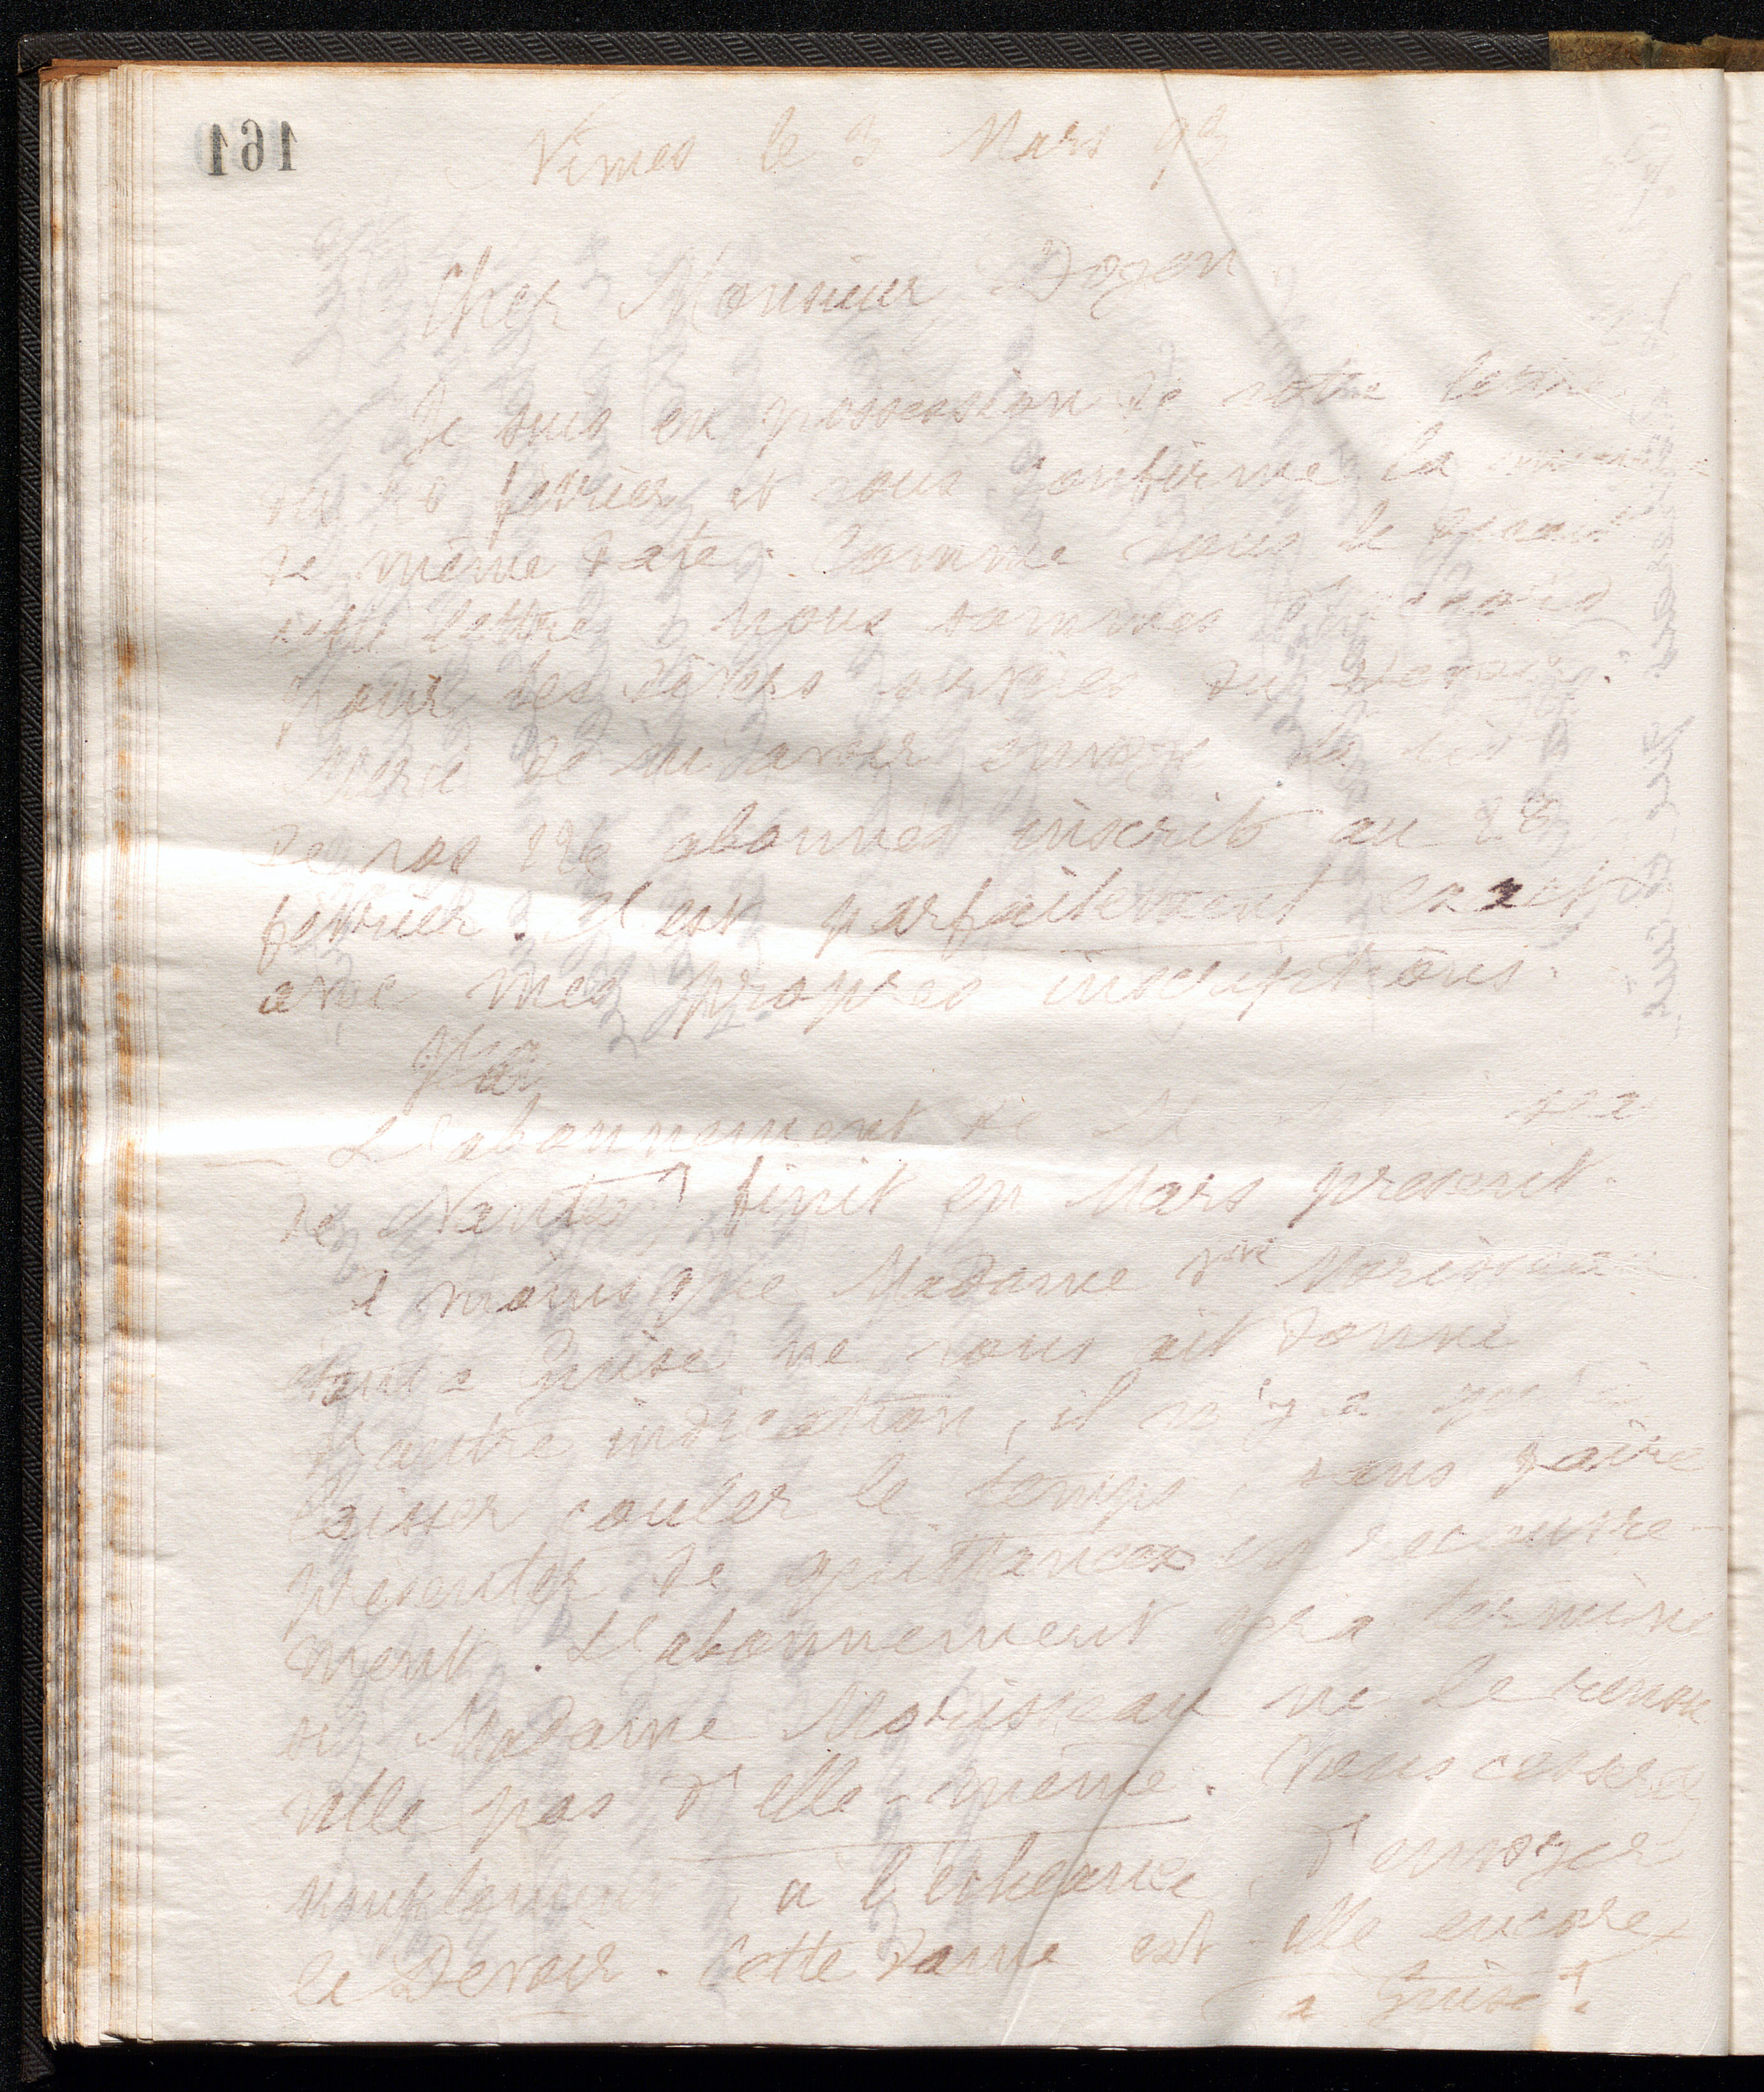 161
Nîmes le 3 Mars 93
Cher Monsieur Doyen
Je suis en possession de votre lettre
du 28 février et vous confirme la mienne
de même date. Comme vous le
cette lettre, nous sommes
pour les divers services du Devoir.
Merci de m'avoir envoyé la
de nos 226 abonnés inscrits au 28
février. Il est parfaitement exact
avec mes propres inscriptions.
L'abonnement de
de Nantes, finit en Mars présent.
A moins que Madame Vve Morisseau
étant à Guise ne vous ait donné
d'autre indication, il n'y a qu'à
laisser couler le temps, sans faire
présenter de quittance en recouvre-
ment. L'abonnement sera terminé
si Madame Morisseau ne le renou
velle pas d'elle-même. Vous cesserez
simplement, à l'échéance, d'envoyer
le Devoir. Cette dame est-elle encore
à Guise?